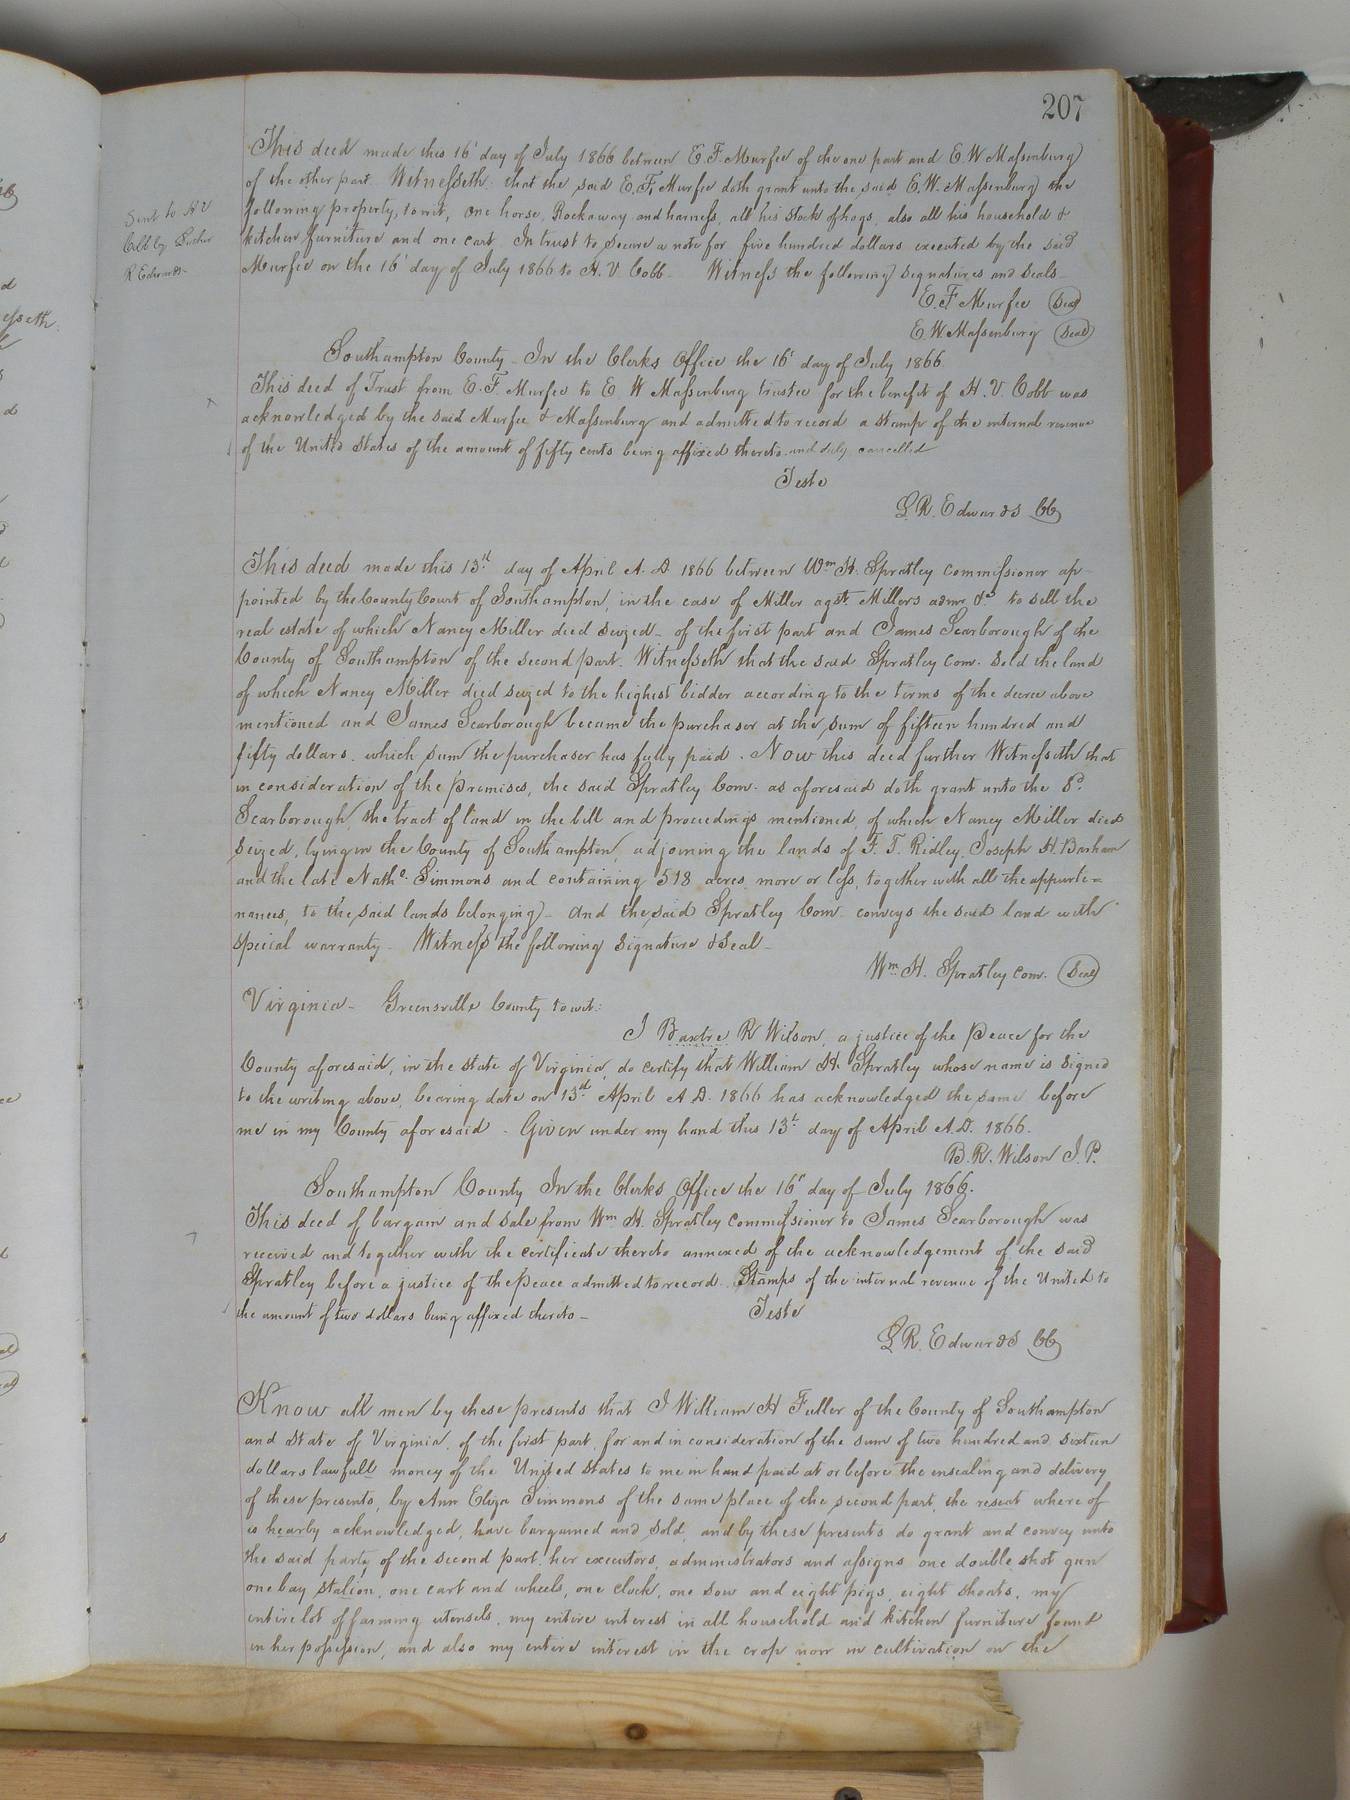 207
This deed made this 16' day of July 1866 between E. F. Murfee of the one part and E W Massenburg
of the other part. Witnesseth: that the said E. F. Murfee doth grant unto the said E. W. Massenburg the
following property, to wit, one horse, Rockaway and harness, all his stock of hogs, also all his household &
kitchen furniture and one cart, In trust to secure a note for five hundred dollars executed by the said
Murfee on the 16' day of July 1866 to H. V. Cobb. Witness the following signatures and seals.
Sent to H V
Cobb by
R Edwards
E. F Murfee Seal
E. W Massenburg Seal
Southampton County - In the Clerks Office the 16' day of July 1866.
This deed of Trust from E. F. Murfee to E. W Massenburg trustee for the benefit of H. V. Cobb was
acknowledged by the said Murfee & Massenburg and admitted to record a stamp of the internal revenue
of the United States of the amount of fifty cents being affixed thereto and duly cancelled
Teste
L R. Edwards CC
This deed made this 13th day of April A. D 1866 between Wm H. Spratley Commissioner ap-
pointed by the County Court of Southampton, in the case of Miller agst. Millers admr. &c to sell the
real estate of which Nancy Miller died seized - of the first part and James Scarborough of the
County of Southampton of the second part. Witnesseth that the said Spratley Com. sold the land
of which Nancy Miller died seized to the highest bidder according to the terms of the decree above
mentioned and James Scarborough became the purchaser at the sum of fifteen hundred and
fifty dollars. which sum the purchaser has fully paid. Now this deed further Witnesseth that
in consideration of the premises, the said Spratley Com. as aforesaid doth grant unto the sd.
Scarborough, the tract of land in the bill and proceedings mentioned, of which Nancy Miller died
seized, lying in the County of Southampton, adjoining the lands of F. T. Ridley, Joseph H. Barham
and the late Nathl. Simmons and containing 518 acres more or less, together with all the appurte=
nances, to the said lands belonging - And the said Spratley Com. conveys the said land with
special warranty - Witness the following signature & Seal -
Wm H. Spratley com. Seal
Virginia - Greensville County to wit:
I Baxtre R Wilson, a justice of the Peace for the
County aforesaid, in the state of Virginia, do certify that William H. Spratley whose name is signed
to the writing above, bearing date on 13th April A D. 1866 has acknowledged the same before
me in my County aforesaid - Given under my hand this 13t day of April A. D. 1866.
B. R. Wilson J. P.
Southampton County In the Clerks Office the 16' day of July 1866.
This deed of bargain and sale from Wm H. Spratley Commissioner to James Scarborough was
received and together with the certificate thereto annexed of the acknowledgement of the said
Spratley before a justice of the peace admitted to record. Stamps of the internal revenue of the United to
the amount of two dollars being affixed thereto - Teste
L R. Edwards CC
Know all men by these presents that I William H Fuller of the County of Southampton
and State of Virginia, of the first part, for and in consideration of the sum of two hundred and sixteen
dollars lawfull money of the United States to me in hand paid at or before the ensealing and delivery
of these presents, by Ann Eliza Simmons of the same place of the second part, the reseat where of
is hearby acknowledged, have bargained and sold, and by these presents do grant and convey unto
the said party of the second part, her executors, administrators and assigns one double shot gun
one bay stalion, one cart and wheels, one clock, one sow and eight pigs, eight shoats, my
entire lot of farming utensels, my entire interest in all household and kitchen furniture found
in her possession, and also my entire interest in the crop now in cultivation on the